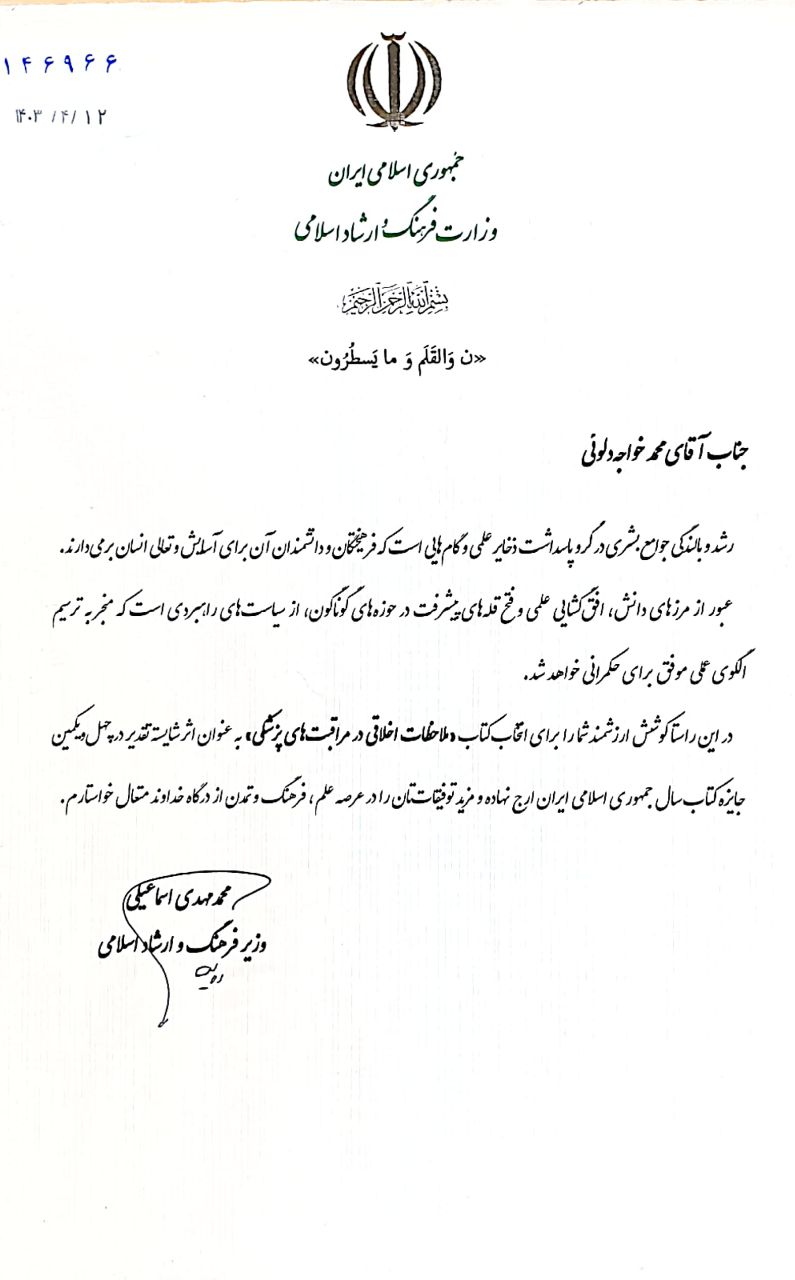 ۱۴۶۹۶۶
۱۴۰۳/۴/۱۲
جمهوری اسلامی ایران
وزارت فرهنگ و ارشاد اسلامی
بسم الله الرحمن الرحیم
«ن وَالقَلَم وَ ما یَسطُرُون»
جناب آقای محمد خواجه دلوئی
رشد و بالندگی جوامع بشری در گرو پاسداشت ذخایر علمی و گام هایی است که فرهیختگان و دانشمندان آن برای آسایش و تعالی انسان برمی دارند.
عبور از مرزهای دانش، افق گشایی علمی و فتح قله های پیشرفت در حوزه های گوناگون، از سیاست های راهبردی است که منجر به ترسیم
الگوی علمی موفق برای حکمرانی خواهد شد.
در این راستا کوشش ارزشمند شما را برای انتخاب کتاب «ملاحظات اخلاقی در مراقبت های پزشکی» به عنوان اثر شایسته تقدیر در چهل و یکمین
جایزه کتاب سال جمهوری اسلامی ایران ارج نهاده و مزید توفیقات‌تان را در عرصه علم، فرهنگ و تمدن از درگاه خداوند متعال خواستارم.
محمد مهدی اسماعیلی
وزیر فرهنگ و ارشاد اسلامی